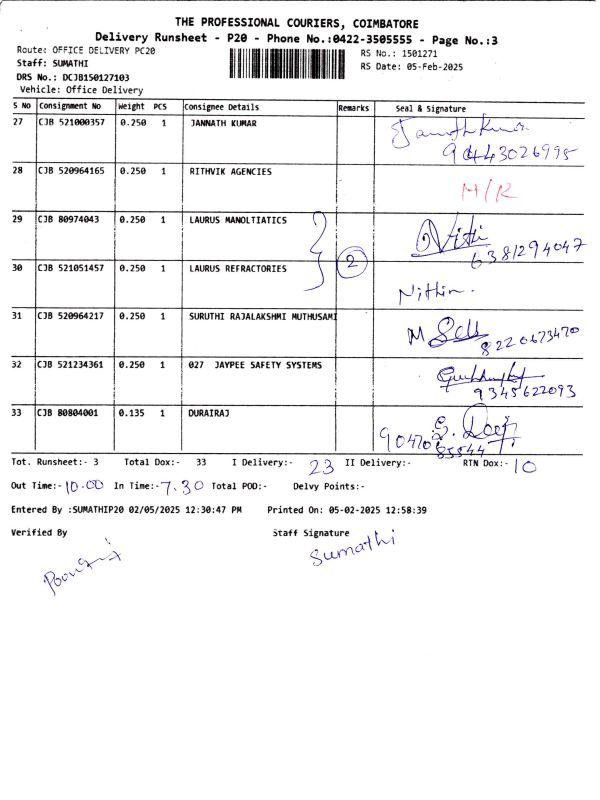 THE PROFESSIONAL COURIERS, COIMBATORE
Delivery Runsheet - P20 - Phone No.:0422-3505555 - Page No.:3
Route: OFFICE DELIVERY PC20
RS No.: 1501271
Staff: SUMATHI
RS Date: 05-Feb-2025
DRS No.: DCJB150127103
Vehicle: Office Delivery
S No Consignment No Weight PCS Consignee Details Remarks Seal & Signature
27 CJB 521000357 0.250 1 JANNATH KUMAR
9443026995
28 CJB 520964165 0.250 1 RITHVIK AGENCIES
H/R
29 CJB 80974043 0.250 1 LAURUS MANOLTIATICS
6381294047
2
30 CJB 521051457 0.250 1 LAURUS REFRACTORIES
Nithin.
31 CJB 520964217 0.250 1 SURUTHI RAJALAKSHMI MUTHUSAMI
8220673470
32 CJB 521234361 0.250 1 027 JAYPEE SAFETY SYSTEMS
9345622093
33 CJB 80804001 0.135 1 DURAIRAJ
9047085544
Tot. Runsheet:- 3 Total Dox:- 33 I Delivery:- 23 II Delivery:- RTN Dox:- 10
Out Time:- 10.00 In Time:- 7.30 Total POD:- Delvy Points:-
Entered By :SUMATHIP20 02/05/2025 12:30:47 PM Printed On: 05-02-2025 12:58:39
Verified By Staff Signature
Sumathi